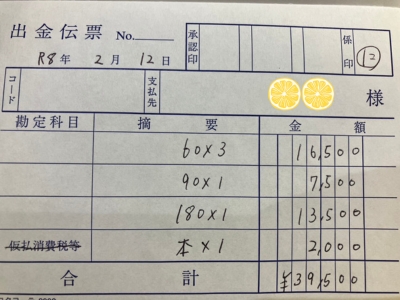 出金伝票 No.
承認印
係印 12
R8年 2月 12日
コード
支払先
様
勘定科目 摘要 金額
60×3 16,500
90×1 7,500
180×1 13,500
仮払消費税等 本×1 2,000
合計 ¥39,500